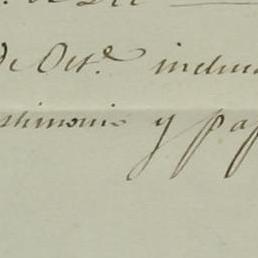 de Oct.e inclu
stimonio y pa